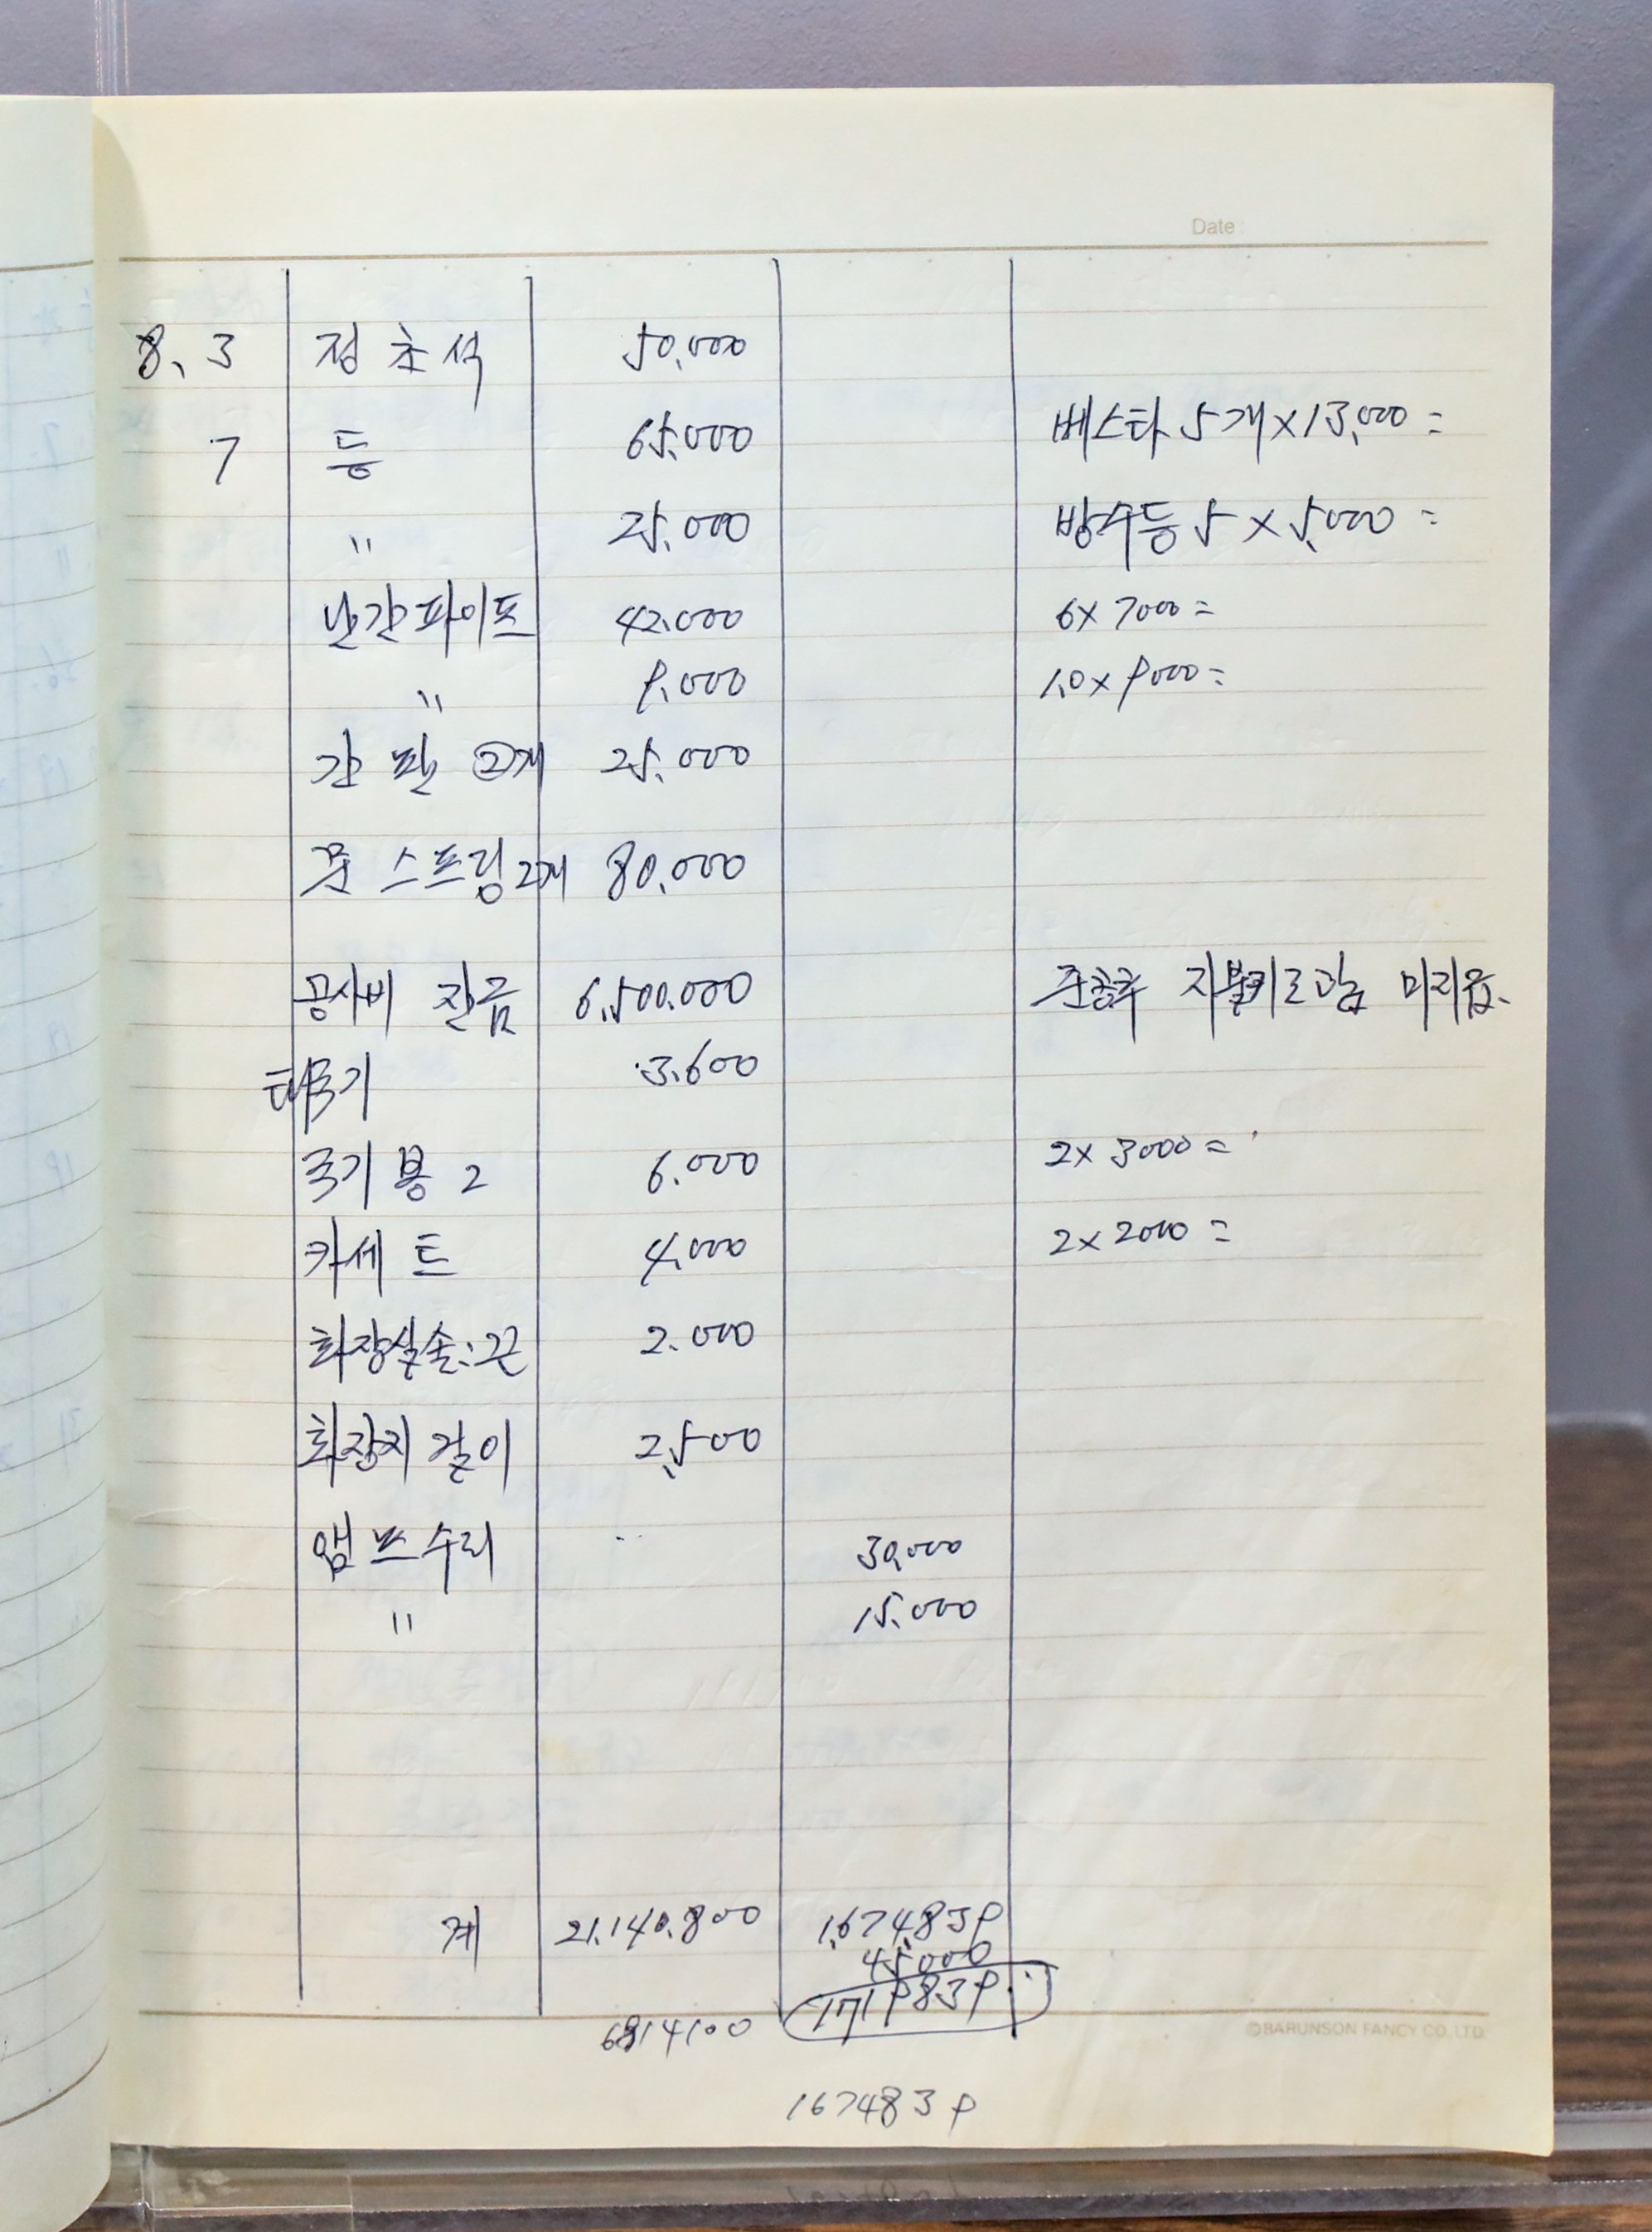 Date
8. 3 정초석 50.000
7 등 65.000 베스타 5개×13,000=
〃 25.000 방수등 5×5,000=
난간파이프 42.000 6×7000=
〃 9.000 1.0×9000=
간판 ②개 25.000
문 스프링 2개 80.000
공사비 잔금 6,500.000 준공후 지불키로함 미지급.
태극기 3.600
국기봉 2 6.000 2×3000=
카세트 4,000 2×2000=
화장실솔:끈 2.000
화장지 걸이 2,500
앰프수리 30,000
〃 15.000
계 21.140.800 1.674.839
45000
1719839
6814100
©BARUNSON FANCY CO.LTD.
1674839